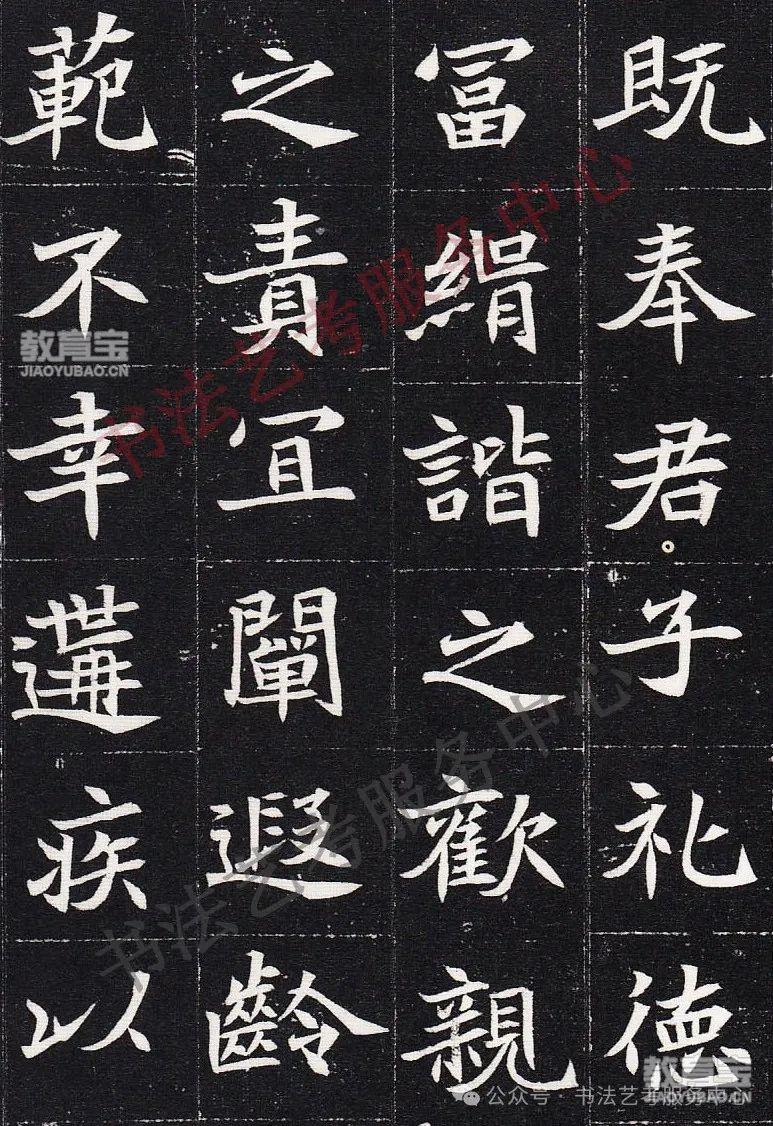 既奉君子礼徳
冨絹諧之歡親
之責冝闡遐齡
範不幸遘疾以
书法艺考服务中心
书法艺考服务中心
教育宝
JIAOYUBAO.CN
教育宝
JIAOYUBAO.CN
公众号·书法艺考服务中心